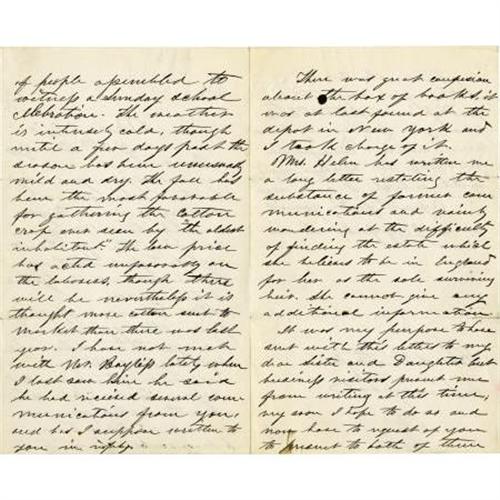 of people assembled to
witness a Sunday school
Celebration. The weather
is intensely cold, though
until a few days past the
season has been unusually
mild and dry. The fall has
been the most favorable
for gathering the cotton
crop ever seen by "the oldest
inhabitant." The low price
has acted unfavorably on
the laborers, though there
will be nevertheless it is
thought more cotton sent to
market than there was last
year. I have not met
with Mr. Bayliss lately when
I last saw him he said
he had received several com
munications from you
and has I suppose written to
you in reply.
There was great confusion
about the box of books it
was at last found at the
depot in New York and
I took charge of it.
Mrs. Helm has written me
a long letter restating the
substance of former com
munications and vainly
wondering at the difficulty
of finding the estate which
she believes to be in England
for her as the sole surviving
heir. She cannot give any
additional information.
It was my purpose to have
sent with this letters to my
dear Sister and Daughter but
business visitors prevent me
from writing at this time,
very soon I hope to do so and
now have to request of you
to present to both of them